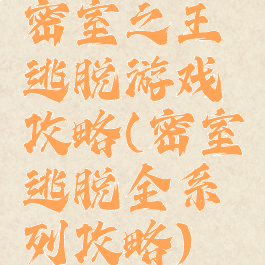 密室之王
逃脱游戏
攻略(密室
逃脱全系
列攻略)